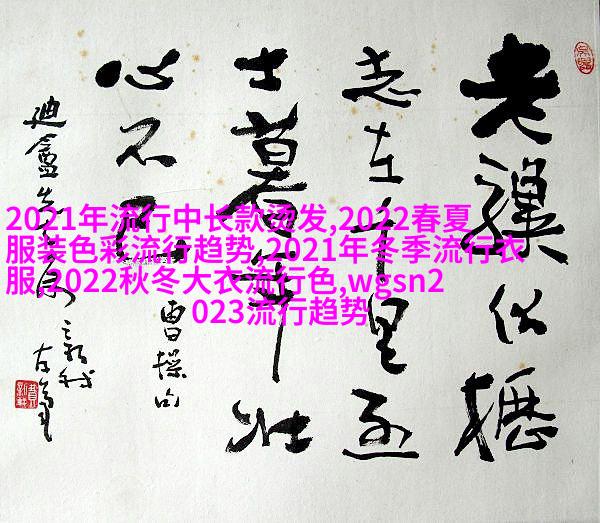 2021年流行中长款烫发,2022春夏
服装色彩流行趋势,2021年冬季流行衣
服,2022秋冬大衣流行色,wgsn2
023流行趋势
老驥伏櫪
志在千里烈
士暮年壯
心不已
曹操句